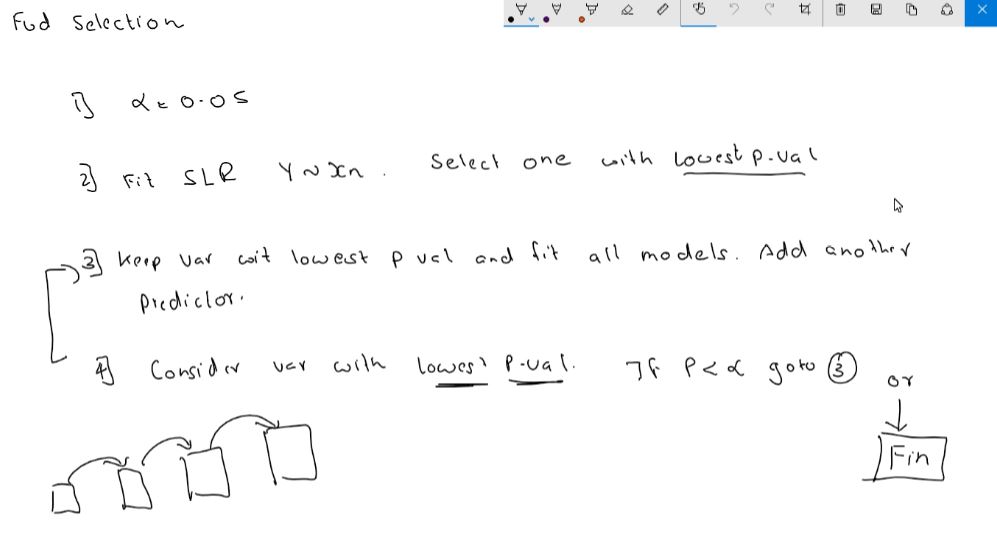 Fwd Selection
1) α = 0.05
2) Fit SLR Y ~ Xn . Select one with lowest P-val
3) Keep var wit lowest p val and fit all models. Add another
Predictor.
4) Consider var with lowest P-val. If P < α goto 3
or
Fin